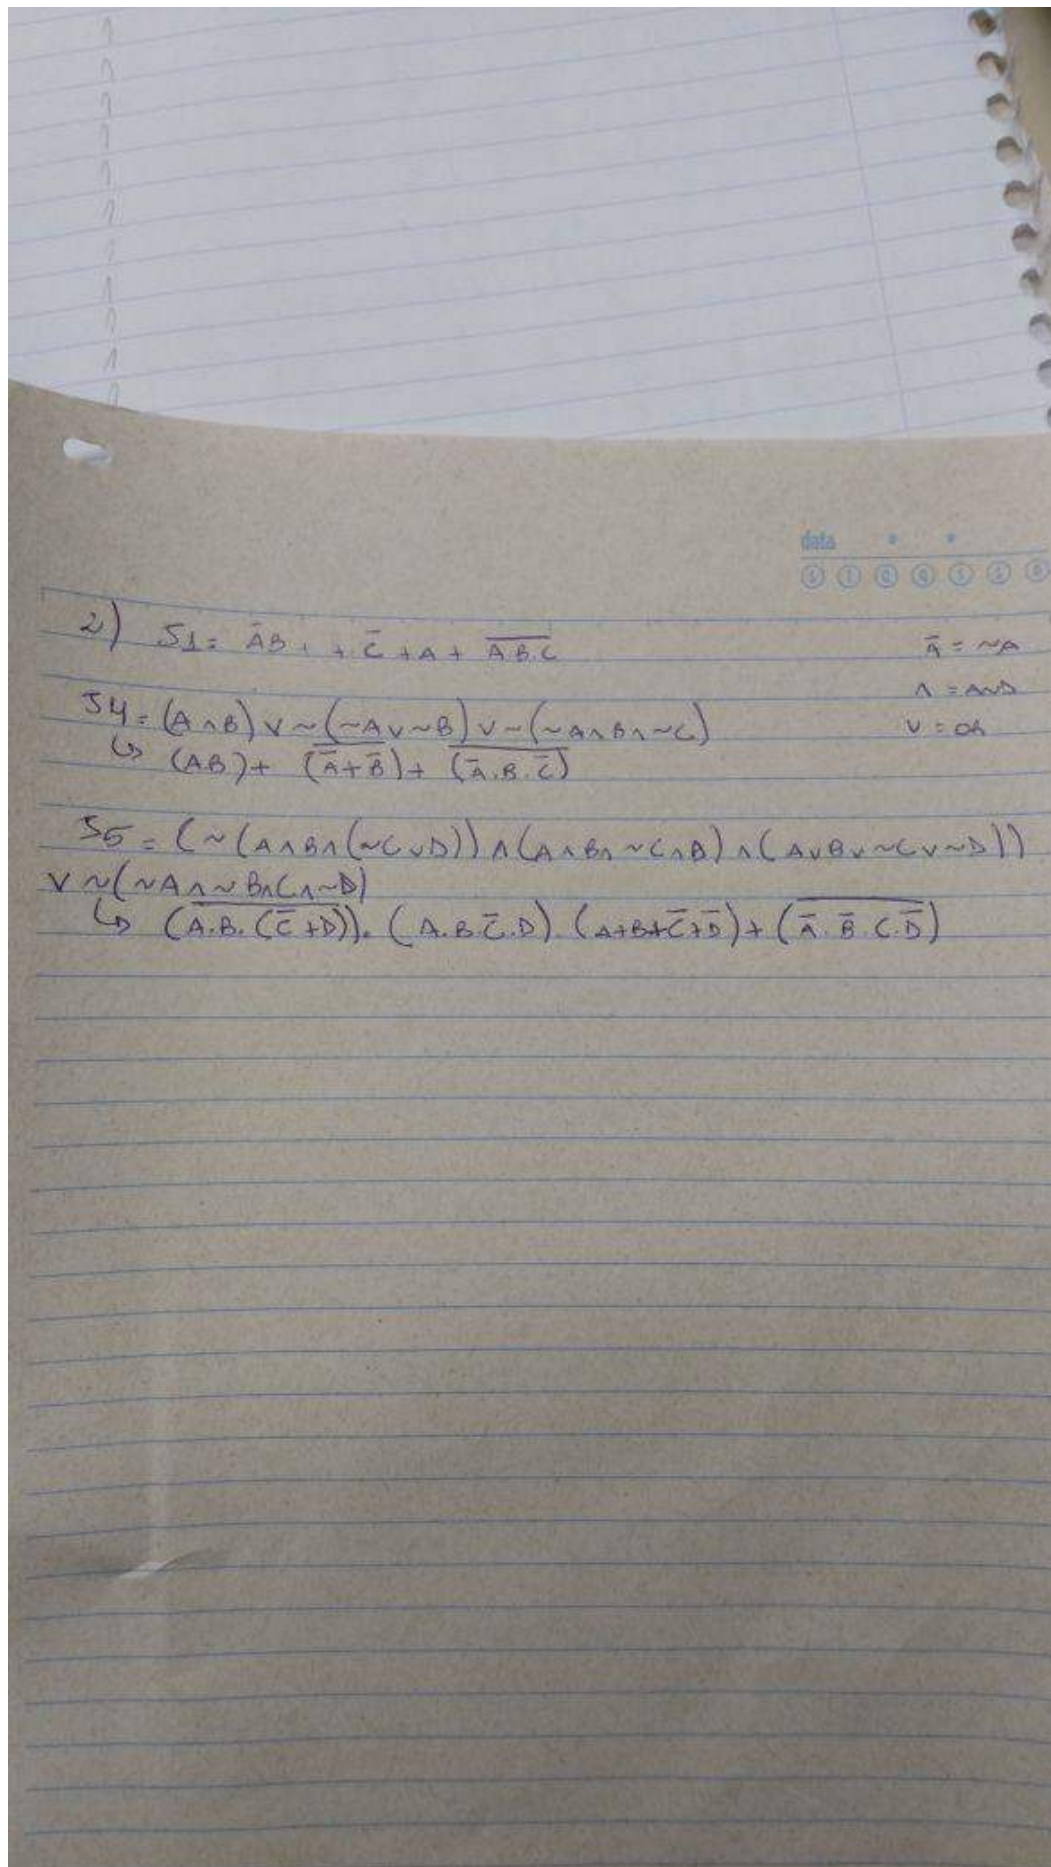 data
S T Q Q S S D
2) S1 = A̅B + + C̅ + A + A̅.̅B̅.̅C̅
A̅ = ~A
∧ = AND
S4 = (A∧B) ∨ ~(~A∨~B) ∨ ~(~A∧B∧~C)
∨ = OR
↳ (A.B) + (A̅+B̅)̅ + (A̅.B.C̅)̅
S5 = (~(A∧B∧(~C∨D)) ∧ (A∧B∧~C∧B) ∧ (A∨B∨~C∨~D))
∨ ~(~A∧~B∧C∧~D)
↳ (A.B.(C̅+D))̅. (A.B.C̅.D). (A+B+C̅+D̅) + (A̅.B̅.C.D̅)̅